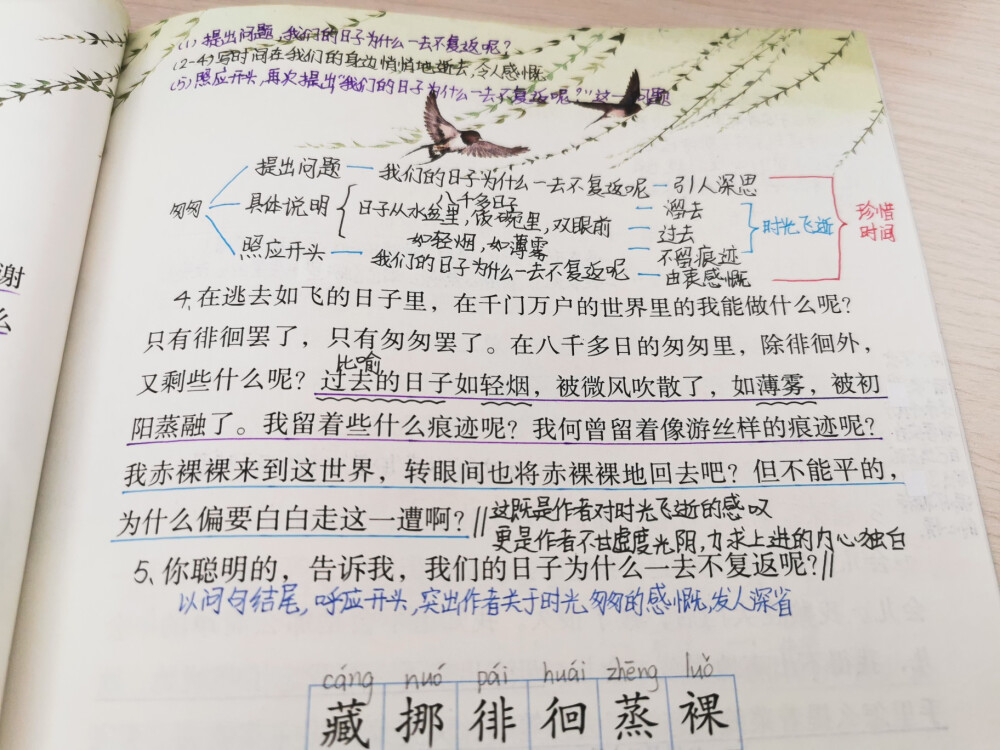 (1) 提出问题，我们的日子为什么一去不复返呢？
(2-4)写时间在我们的身边悄悄地逝去，令人感慨
(5) 照应开头，再次提出“我们的日子为什么一去不复返呢？”这一问题
提出问题 — 我们的日子为什么一去不复返呢 — 引人深思
八千多日子 — 溜去
匆匆 具体说明 日子从水盆里，饭碗里，双眼前 — 过去 时光飞逝 珍惜时间
如轻烟，如薄雾 — 不留痕迹
照应开头 — 我们的日子为什么一去不复返呢 — 由衷感慨
4、在逃去如飞的日子里，在千门万户的世界里的我能做什么呢？
只有徘徊罢了，只有匆匆罢了。在八千多日的匆匆里，除徘徊外，
比喻
又剩些什么呢？过去的日子如轻烟，被微风吹散了，如薄雾，被初
阳蒸融了。我留着些什么痕迹呢？我何曾留着像游丝样的痕迹呢？
我赤裸裸来到这世界，转眼间也将赤裸裸地回去吧？但不能平的，
为什么偏要白白走这一遭啊？‖这既是作者对时光飞逝的感叹
更是作者不甘虚度光阴，力求上进的内心独白
5、你聪明的，告诉我，我们的日子为什么一去不复返呢？‖
以问句结尾，呼应开头，突出作者关于时光匆匆的感慨，发人深省
cáng nuó pái huái zhēng luǒ
藏 挪 徘 徊 蒸 裸
谢
么